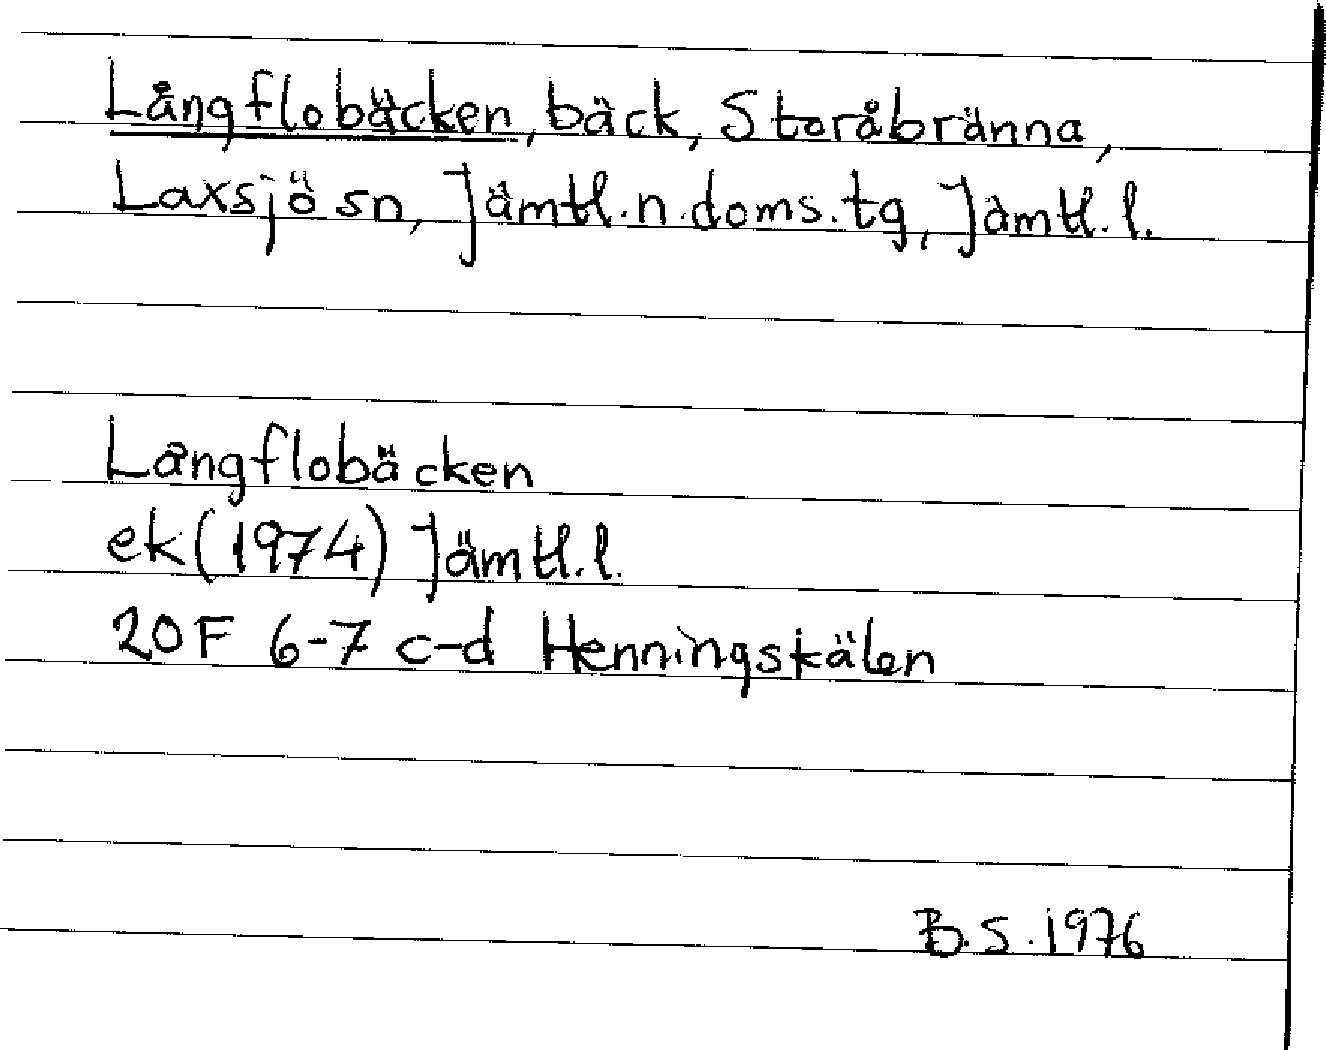 Långflobäcken, bäck, Storåbränna,
Laxsjö sn, Jämtl.n.doms.tg, Jämtl.l.
Långflobäcken
ek (1974) Jämtl.l.
20F 6-7 c-d Henningskälen
B.S. 1976